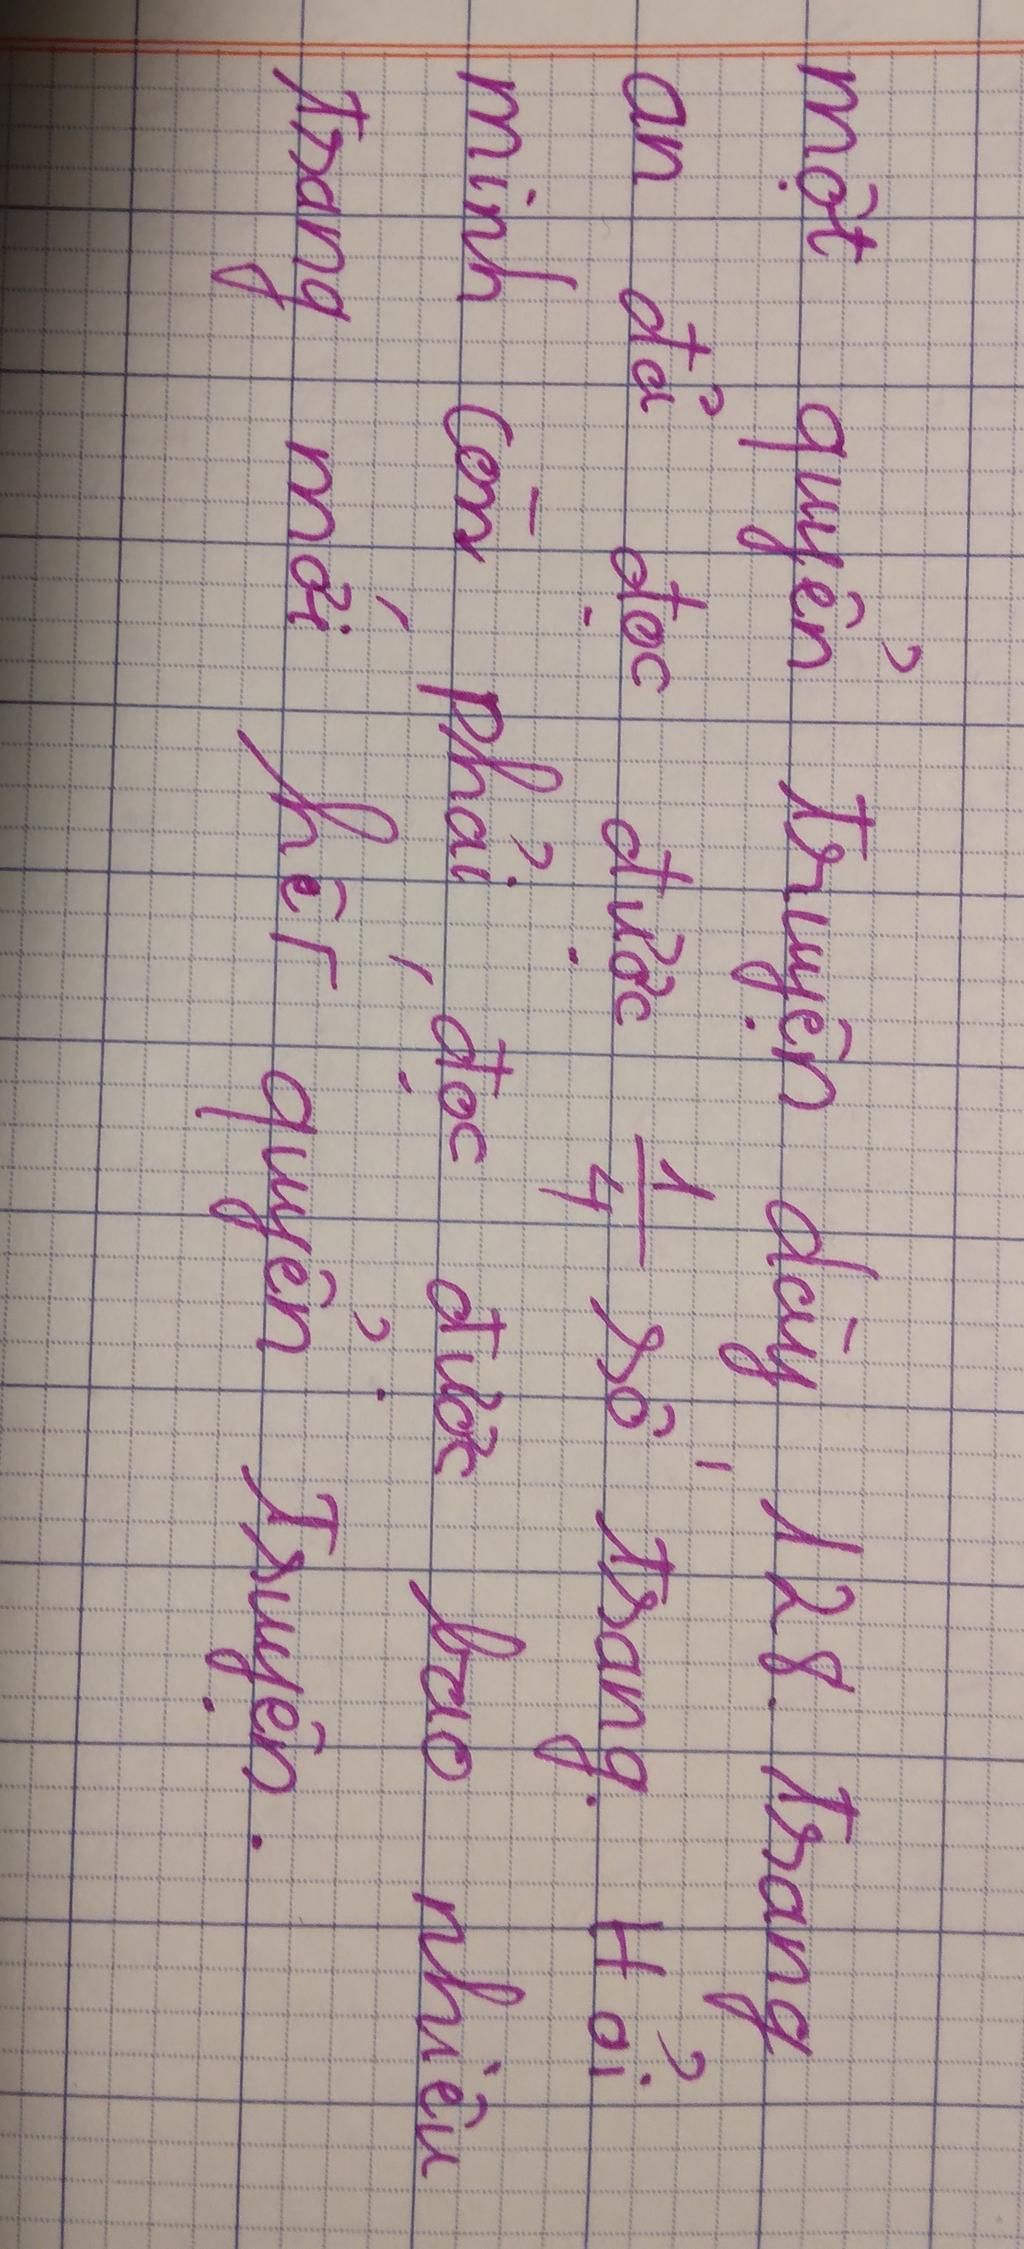 một quyển truyện dày 128 trang
an đả đọc được 1/4 số trang. Hỏi
minh còn phải đọc được bao nhiêu
trang mới hết quyển truyện.